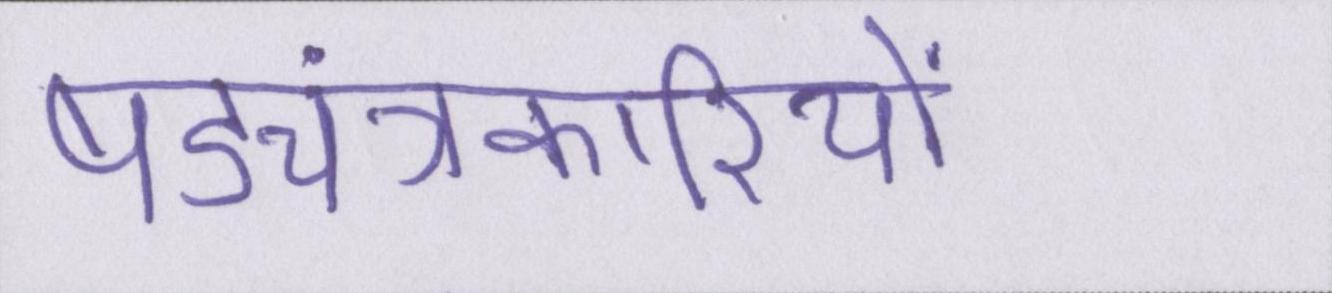 षड्यंत्रकारियों